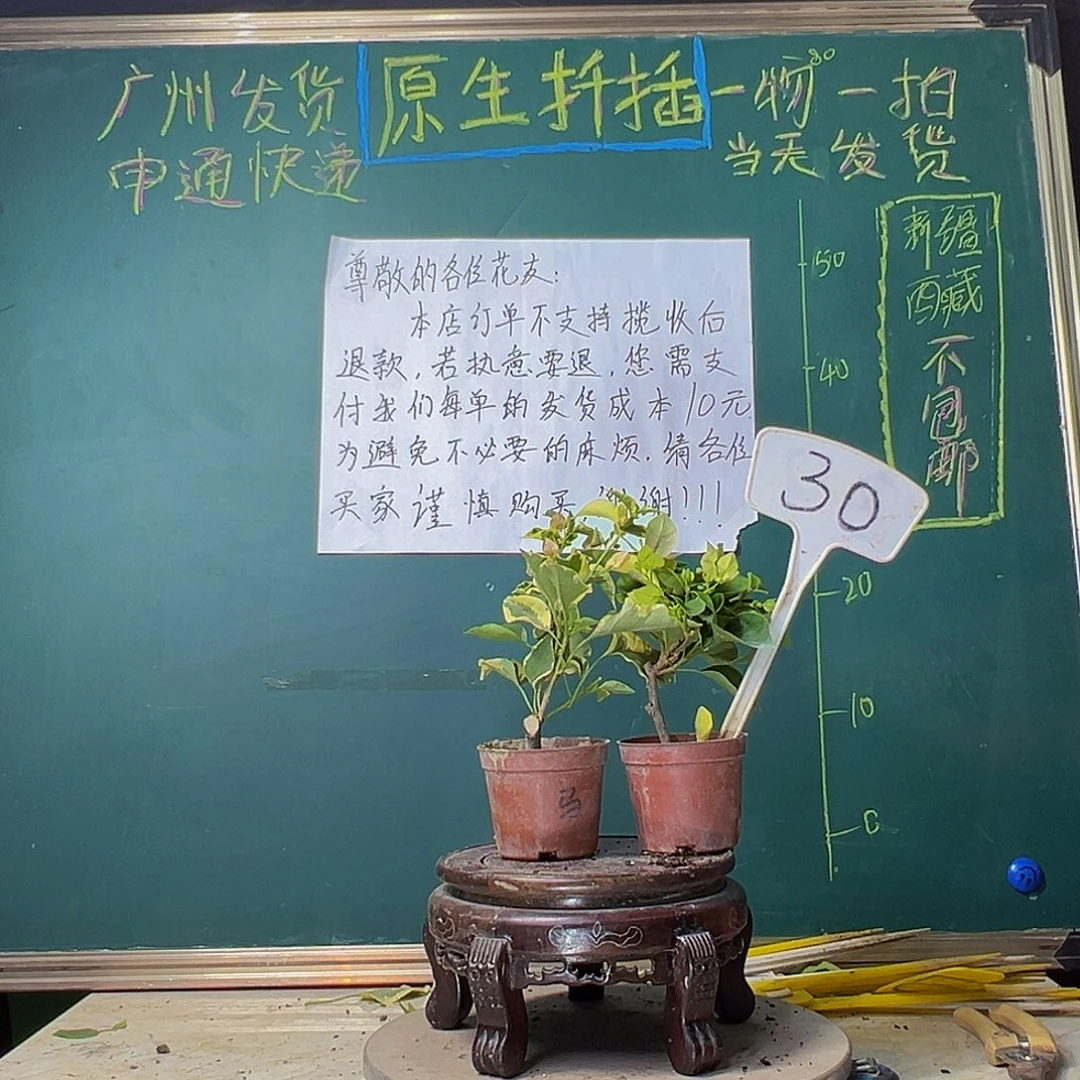 广州发货
申通快递
原生扦插
一物一拍
当天发货
新疆
西藏
不
包
邮
尊敬的各位花友:
本店订单不支持揽收后
退款,若执意要退,您需支
付我们每单的发货成本10元
为避免不必要的麻烦,请各位
买家谨慎购买 谢谢!!!
50
40
30
20
10
0